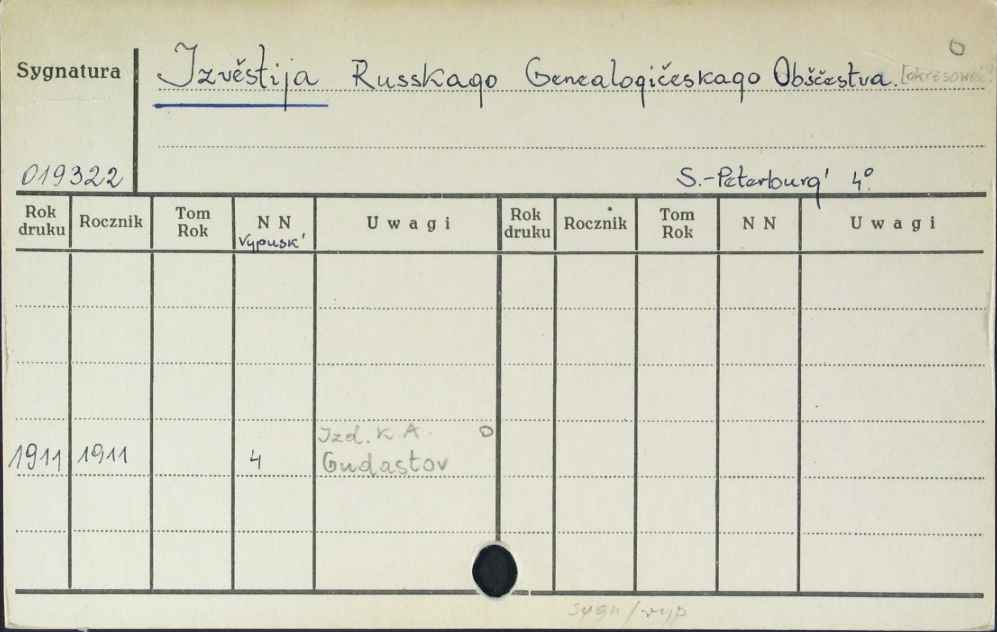 Sygnatura Izvěstija Russkago Genealogičeskago Obščestva.
019322 S.-Peterburg' 4°
Rok druku Rocznik Tom Rok N N Uwagi Rok druku Rocznik Tom Rok N N Uwagi
Vypusk'
Izd. K. A. O
1911 1911 4 Gudastov
sygn/wyp